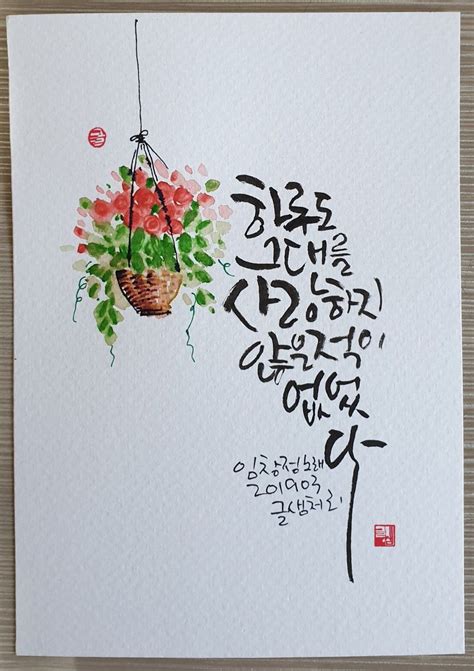 글
하루도
그대를
사랑하지
않은적이
없었
다
임창정노래
2019
글샘처리